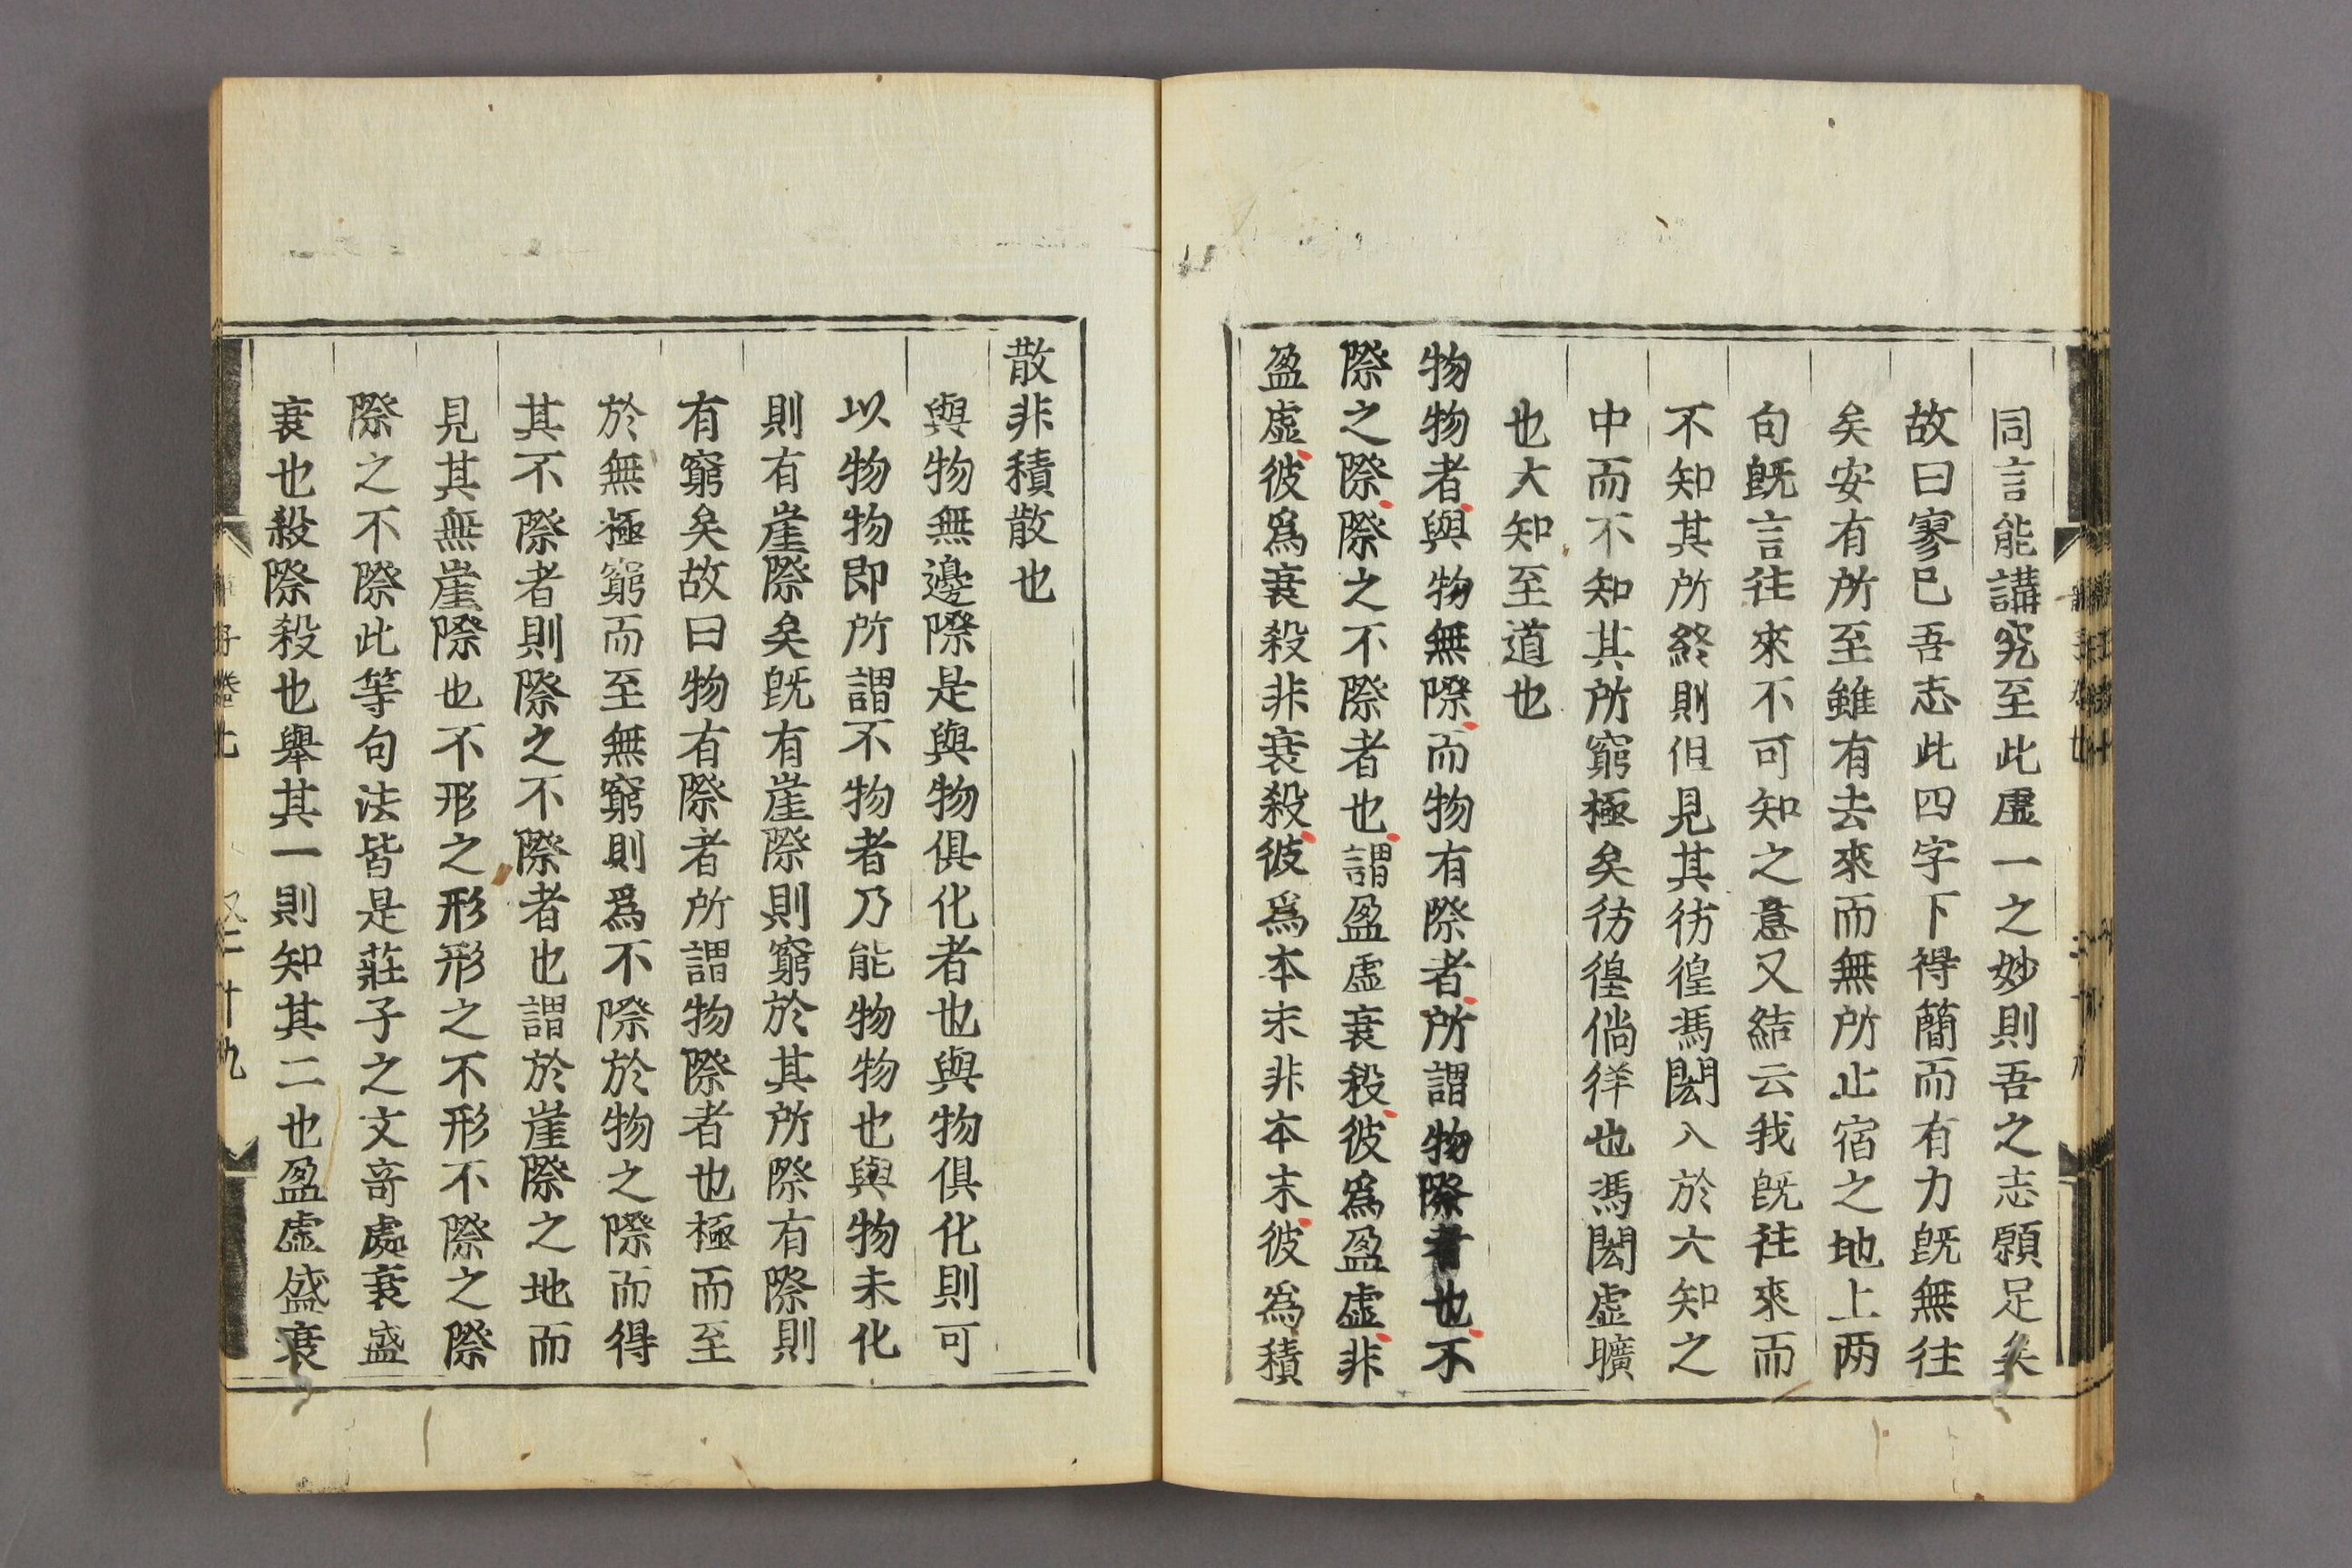 同言能講究至此虛一之妙則吾之志願足矣
故曰寥已吾志此四字下得簡而有力旣無往
矣安有所至雖有去來而無所止宿之地上两
句旣言往來不可知之意又結云我旣往來而
不知其所終則但見其彷徨馮閎入於大知之
中而不知其所窮極矣彷徨倘徉也馮閎虛曠
也大知至道也
物物者與物無際而物有際者所謂物際者也不
際之際際之不際者也謂盈虛衰殺彼爲盈虛非
盈虛彼爲衰殺非衰殺彼爲本末非本末彼爲積
散非積散也
與物無邊際是與物俱化者也與物俱化則可
以物物即所謂不物者乃能物物也與物未化
則有崖際矣旣有崖際則窮於其所際有際則
有窮矣故曰物有際者所謂物際者也極而至
於無極窮而至無窮則爲不際於物之際而得
其不際者則際之不際者也謂於崖際之地而
見其無崖際也不形之形形之不形不際之際
際之不際此等句法皆是莊子之文奇處衰盛
衰也殺際殺也舉其一則知其二也盈虛盛衰